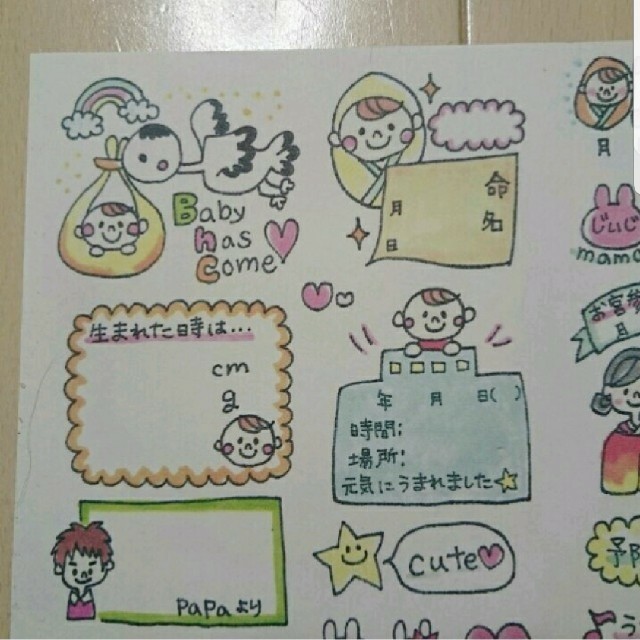 Baby
has
Come
命名
月
日
月
じぃじ
mama
生まれた日時は…
cm
g
年 月 日( )
時間:
場所:
元気にうまれました
お宮参
月
PaPaより
cute
予防